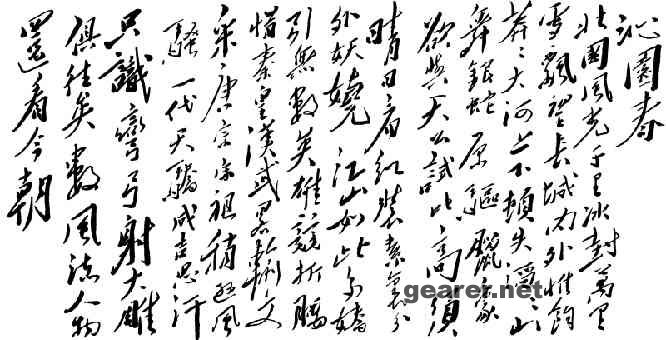 沁園春
北國風光千里冰封萬里
雪飄望長城內外惟餘
莽々大河上下頓失滔々山
舞銀蛇原驅臘象
欲與天公試比高須
晴日看紅裝素裹分
外妖嬈江山如此多嬌
引無數英雄競折腰
惜秦皇漢武略輸文
采唐宗宋祖稍遜風
騷一代天驕成吉思汗
只識彎弓射大雕
俱往矣數風流人物
還看今朝
gearer.net